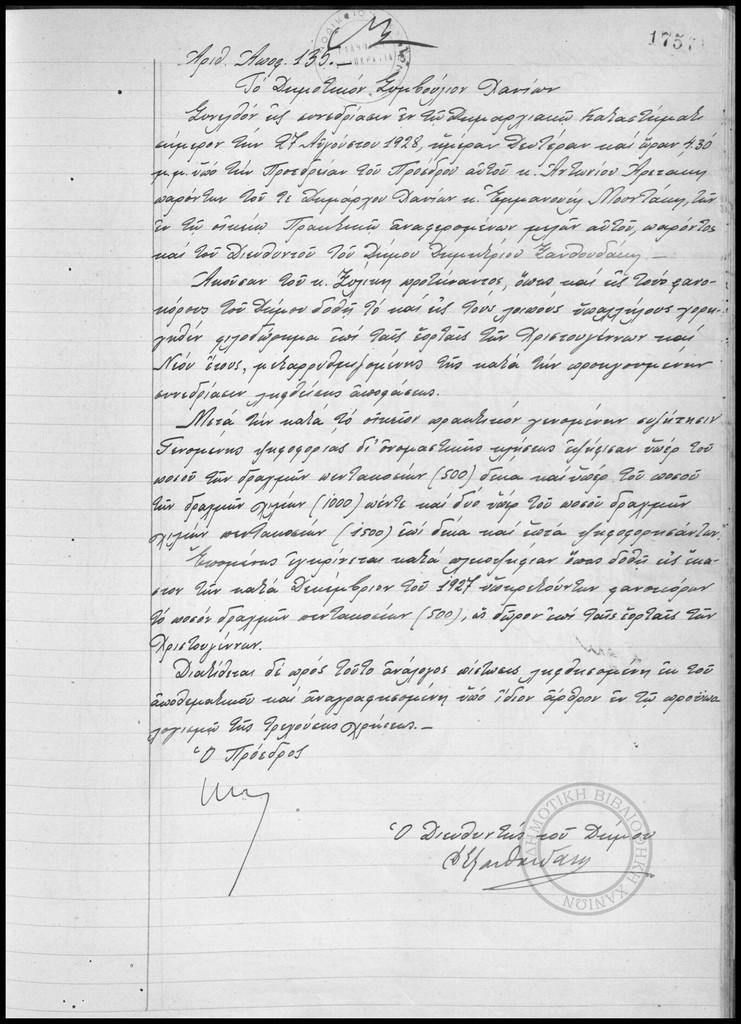 1757
Ἀριθ. Ἀποφ. 135.-
Τό Δημοτικόν Συμβούλιον Χανίων
Συνελθόν εἰς συνεδρίασιν ἐν τῷ Δημαρχιακῷ Καταστήματι
σήμερον τήν 27 Αὐγούστου 1928, ἡμέραν Δευτέραν καί ὥραν 4.30
μ.μ. ὑπό τήν Προεδρείαν τοῦ Προέδρου αὐτοῦ κ. Ἀντωνίου
παρόντων τοῦ τε Δημάρχου Χανίων κ. Ἐμμανουήλ Μουντάκη, τῶν
ἐν τῷ οἰκείῳ Πρακτικῷ ἀναφερομένων μελῶν αὐτοῦ, παρόντος
καί τοῦ Διευθυντοῦ τοῦ Δήμου Δημητρίου Ξανθουδάκη.-
Ἀκοῦσαν τοῦ κ. Ξυλίκη προτείναντος, ὅπως καί εἰς τούς φανο-
κόρους τοῦ Δήμου δοθῇ τό καί εἰς τούς λοιπούς ὑπαλλήλους χορη-
γηθέν φιλοδώρημα ἐπί ταῖς ἑορταῖς τῶν Χριστουγέννων καί
Νέου ἔτους, μεταρρυθμιζομένης τῆς κατά τήν προηγουμένην
συνεδρίασιν ληφθείσης ἀποφάσεως.
Μετά τήν κατά τό οἰκεῖον πρακτικόν γενομένην συζήτησιν
Γενομένης ψηφοφορίας δι' ὀνομαστικῆς κλήσεως ἐψήφισαν ὑπέρ τοῦ
ποσοῦ τῶν δραχμῶν πεντακοσίων (500) δέκα καί ὑπέρ τοῦ ποσοῦ
τῶν δραχμῶν χιλίων (1000) πέντε καί δύο ὑπέρ τοῦ ποσοῦ δραχμῶν
χιλίων πεντακοσίων (1500) ἐπί δέκα καί ἑπτά ψηφοφορησάντων.
Ἑπομένως ἐγκρίνεται κατά πλειοψηφίαν ὅπως δοθῇ εἰς ἕκα-
στον τῶν κατά Δεκέμβριον τοῦ 1927 ὑπηρετούντων φανοκόρων
τό ποσόν δραχμῶν πεντακοσίων (500), ὡς δῶρον ἐπί ταῖς ἑορταῖς τῶν
Χριστουγέννων.
Διατίθεται δέ πρός τοῦτο ἀνάλογος πίστωσις ληφθησομένη ἐκ τοῦ
ἀποθεματικοῦ καί ἀναγραφησομένη ὑπό ἴδιον ἄρθρον ἐν τῷ προϋπο-
λογισμῷ τῆς τρεχούσης χρήσεως.-
Ὁ Πρόεδρος
Ὁ Διευθυντής τοῦ Δήμου
ΔΞανθουδάκης
ΔΗΜΟΤΙΚΗ ΒΙΒΛΙΟΘΗΚΗ ΧΑΝΙΩΝ